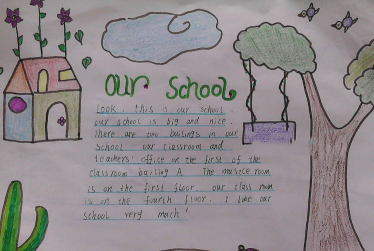 Our School
Look, this is our school.
our school is big and nice.
There are two bailings in our
school our classroom and
teachers' office on the first of the
classroom bailing A The musice room
is on the first floor. our class room
is on the fourth floor. I like our
school very much!